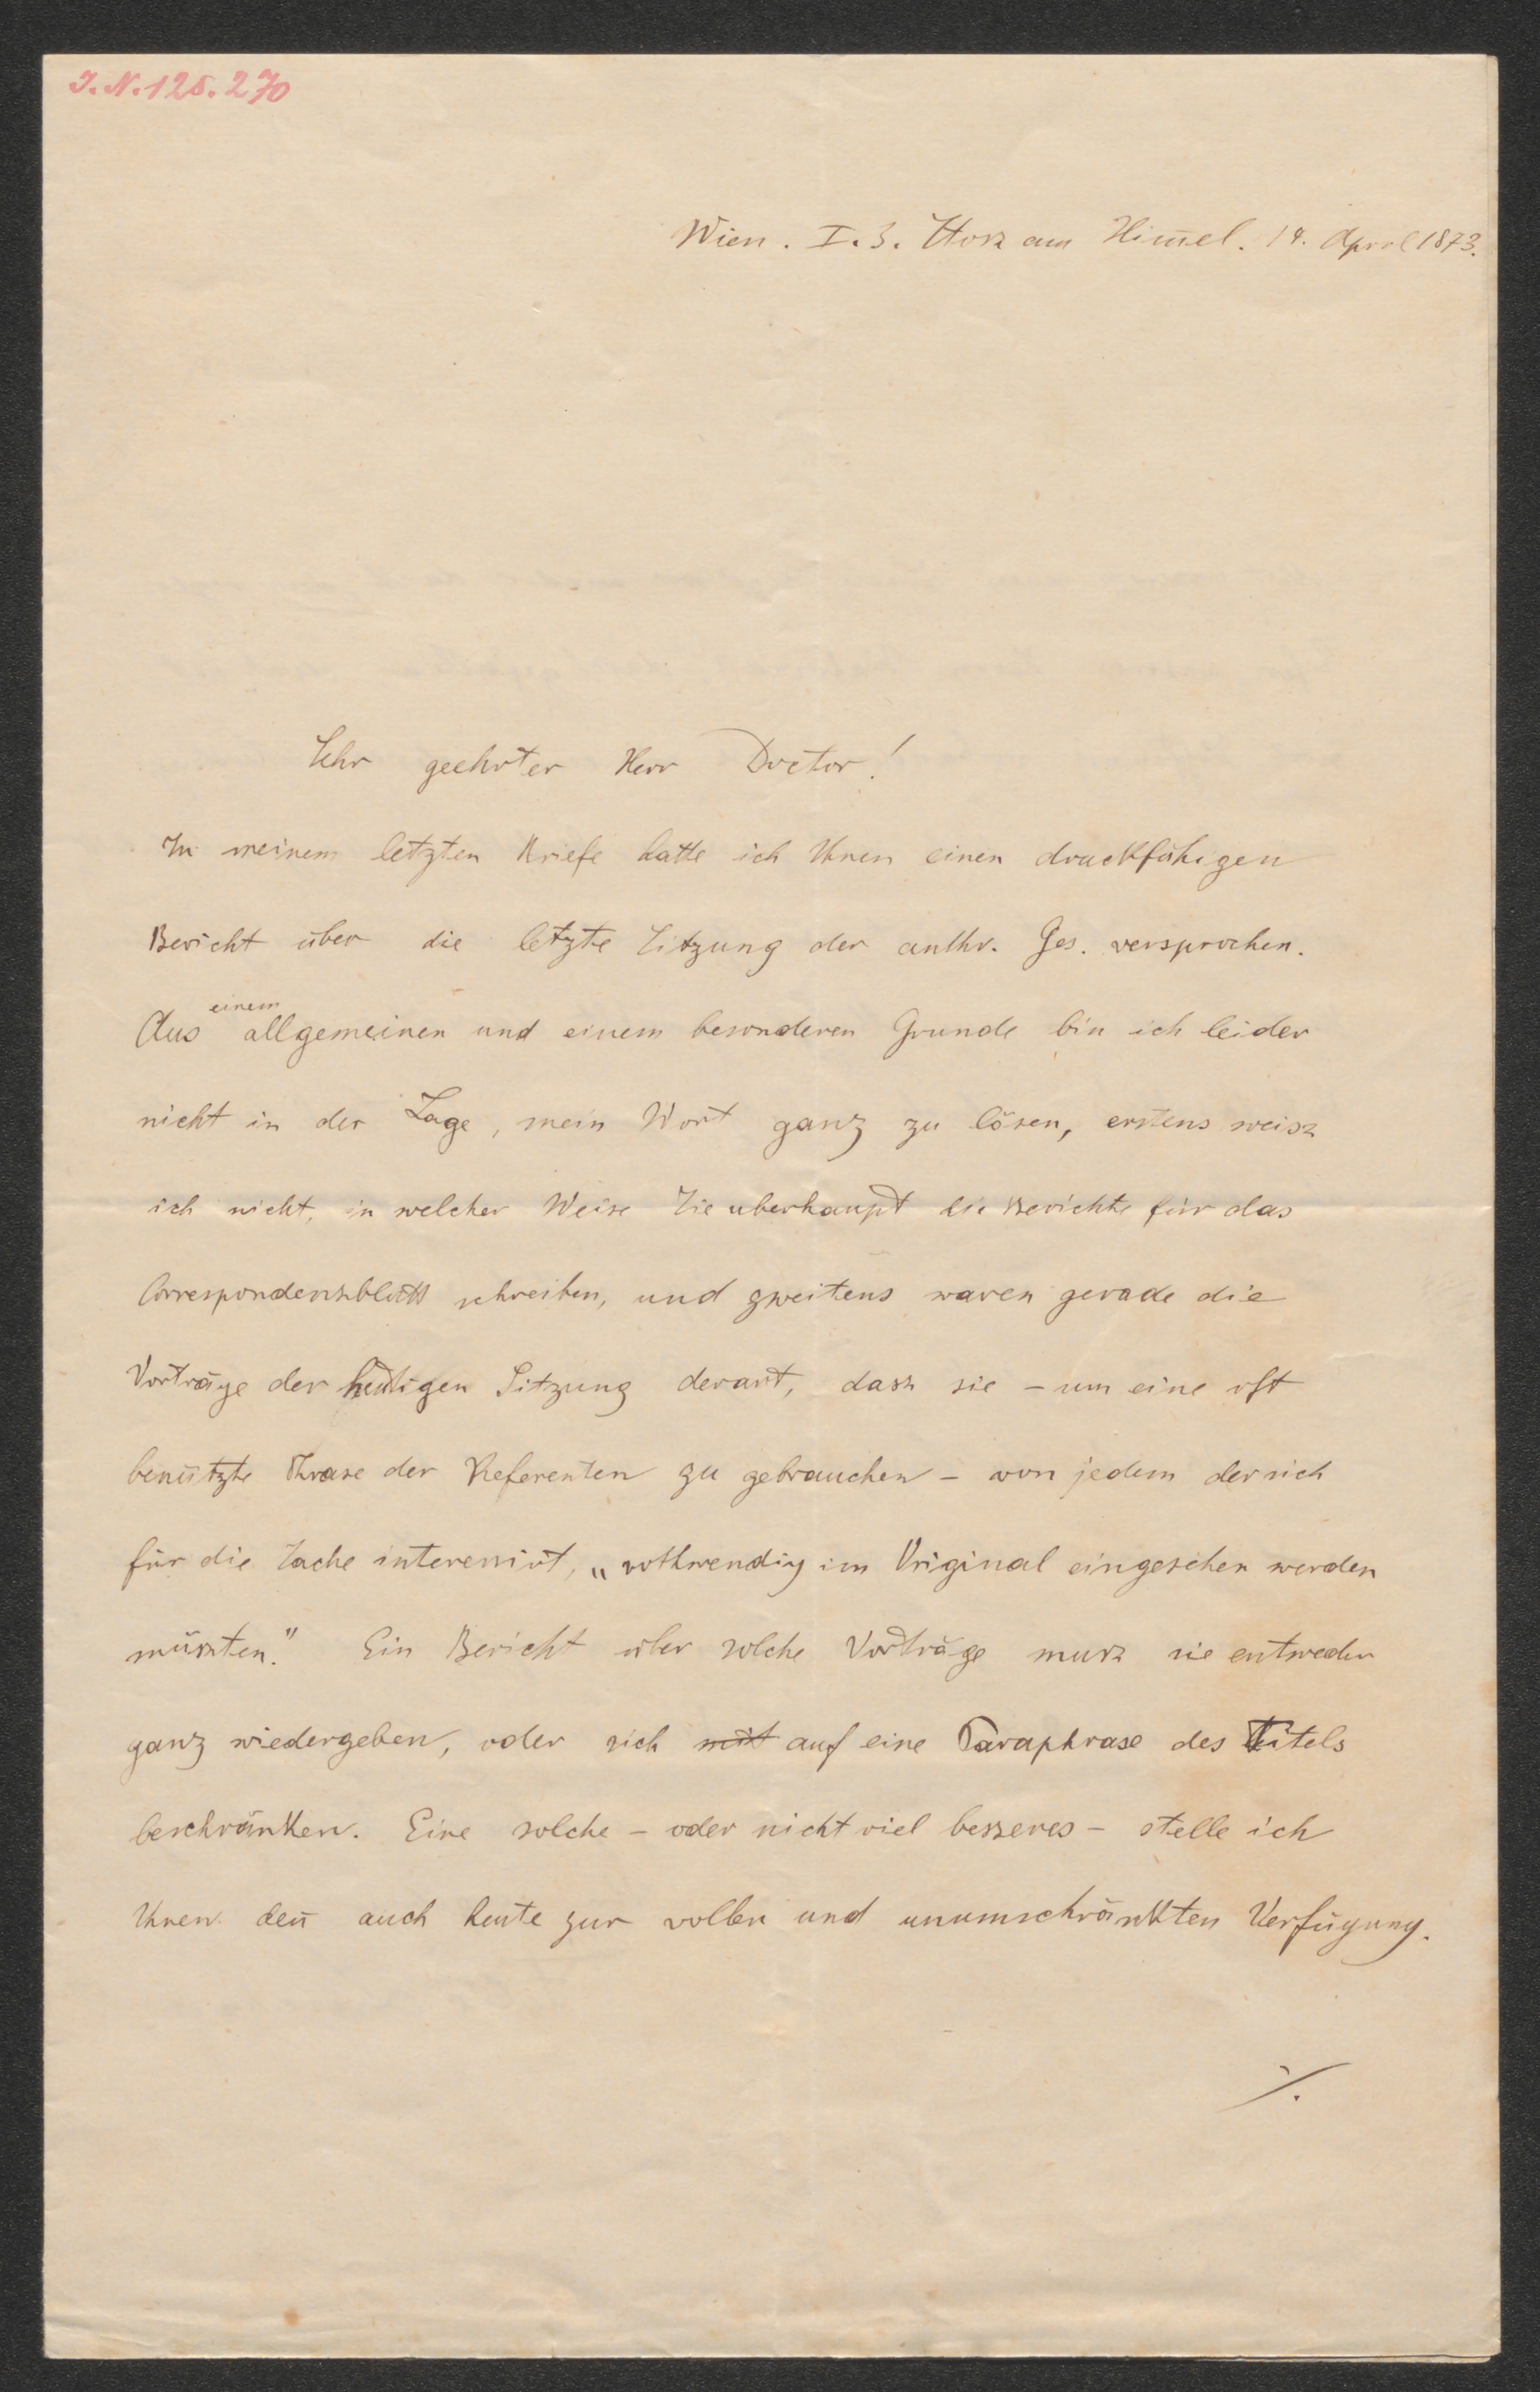 J. N. 125.270
Wien. I. 3. Stosz am Him̄el. 14. April 1873.
Sehr geehrter Herr Doctor!
In meinem letzten Briefe hatte ich Ihnen einen druckfähigen
Bericht über die letzte Sitzung der anthr. Ges. versprochen.
Aus einem allgemeinen und einem besonderen Grunde bin ich leider
nicht in der Lage, mein Wort ganz zu lösen, erstens weisz
ich nicht, in welcher Weise Sie uberhaupt die Berichte für das
Correspondenzblatt schreiben, und zweitens waren gerade die
Vorträge der heutigen Sitzung derart, dasz sie – um eine oft
benützte Phrase der Referenten zu gebrauchen – von jedem der sich
für die Sache interessirt, „nothwendig im Original eingesehen werden
müszten." Ein Bericht über solche Vorträge musz sie entweder
ganz wiedergeben, oder sich mit auf eine Paraphrase des Titels
beschränken. Eine solche – oder nicht viel besseres – stelle ich
Ihnen den̄ auch heute zur vollen und unumschränkten Verfügung.
./.